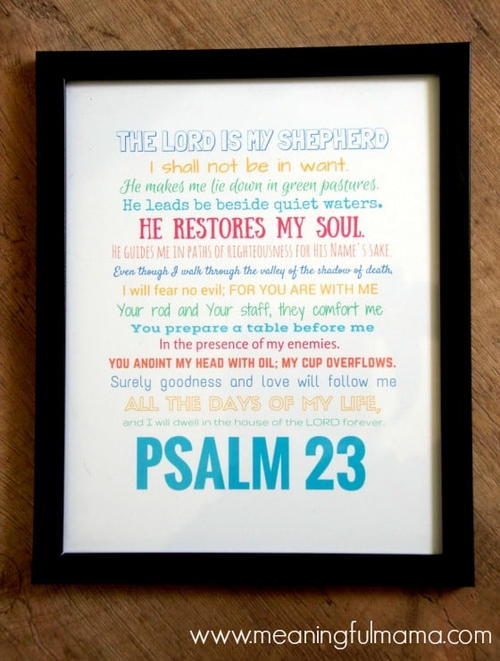 THE LORD IS MY SHEPHERD
I shall not be in want.
He makes me lie down in green pastures.
He leads be beside quiet waters.
HE RESTORES MY SOUL.
HE GUIDES ME IN PATHS OF RIGHTEOUSNESS FOR HIS NAME'S SAKE.
Even though I walk through the valley of the shadow of death,
I will fear no evil; FOR YOU ARE WITH ME
Your rod and Your staff, they comfort me
You prepare a table before me
In the presence of my enemies.
YOU ANOINT MY HEAD WITH OIL; MY CUP OVERFLOWS.
Surely goodness and love will follow me
ALL THE DAYS OF MY LIFE,
and I will dwell in the house of the LORD forever.
PSALM 23
www.meaningfulmama.com